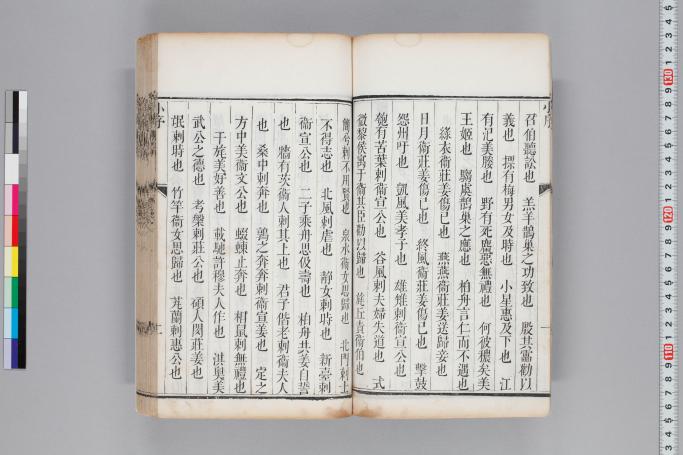 召伯聽訟也　羔羊鵲巢之功致也　殷其靁勸以
義也　摽有梅男女及時也　小星惠及下也　江
有汜美媵也　野有死麕惡無禮也　何彼穠矣美
王姬也　騶虞鵲巢之應也　柏舟言仁而不遇也
綠衣衞莊姜傷已也　燕燕衞莊姜送歸妾也
日月衞莊姜傷已也　終風衞莊姜傷已也　擊鼓
怨州吁也　凱風美孝子也　雄雉刺衞宣公也
匏有苦葉刺衞宣公也　谷風刺夫婦失道也　式
微黎侯寓于衞其臣勸以歸也　旄丘責衞伯也
簡兮刺不用賢也　泉水衞女思歸也　北門刺士
不得志也　北風刺虐也　靜女刺時也　新臺刺
衞宣公也　二子乘舟思伋壽也　柏舟共姜自誓
也　牆有茨衞人刺其上也　君子偕老刺衞夫人
也　桑中刺奔也　鶉之奔奔刺衞宣姜也　定之
方中美衞文公也　蝃蝀止奔也　相鼠刺無禮也
干旄美好善也　載馳許穆夫人作也　淇奧美
武公之德也　考槃刺莊公也　碩人閔莊姜也
氓刺時也　竹竿衞女思歸也　芄蘭刺惠公也
小序